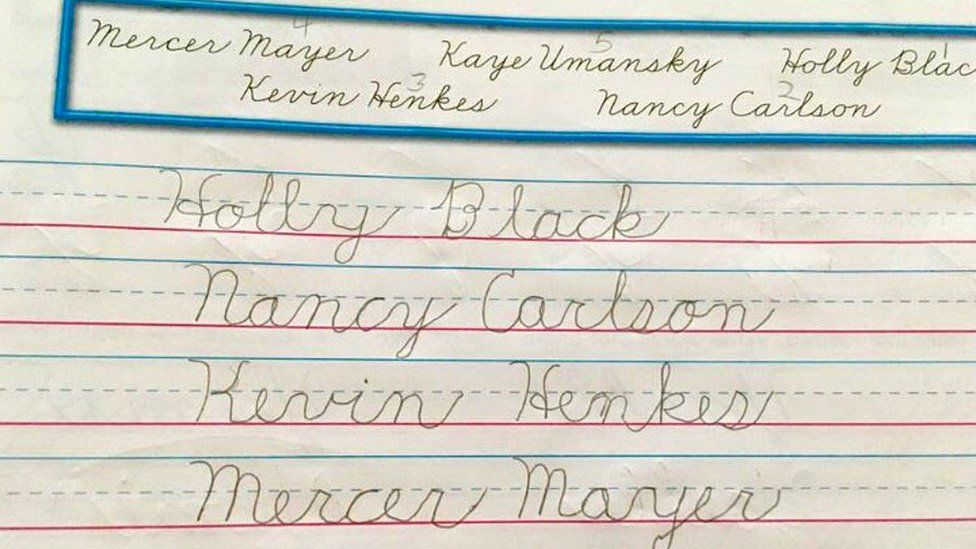 Mercer Mayer Kaye Umansky Holly Blac
4 5 1
Kevin Henkes Nancy Carlson
3 2
Holly Black
Nancy Carlson
Kevin Henkes
Mercer Mayer